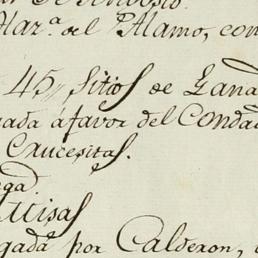 Mar.ª del Alamo, con
45,, Sitios de Gana
gada á favor del Conda
Crucesitas.
ega.
Misas
gada por Calderon,